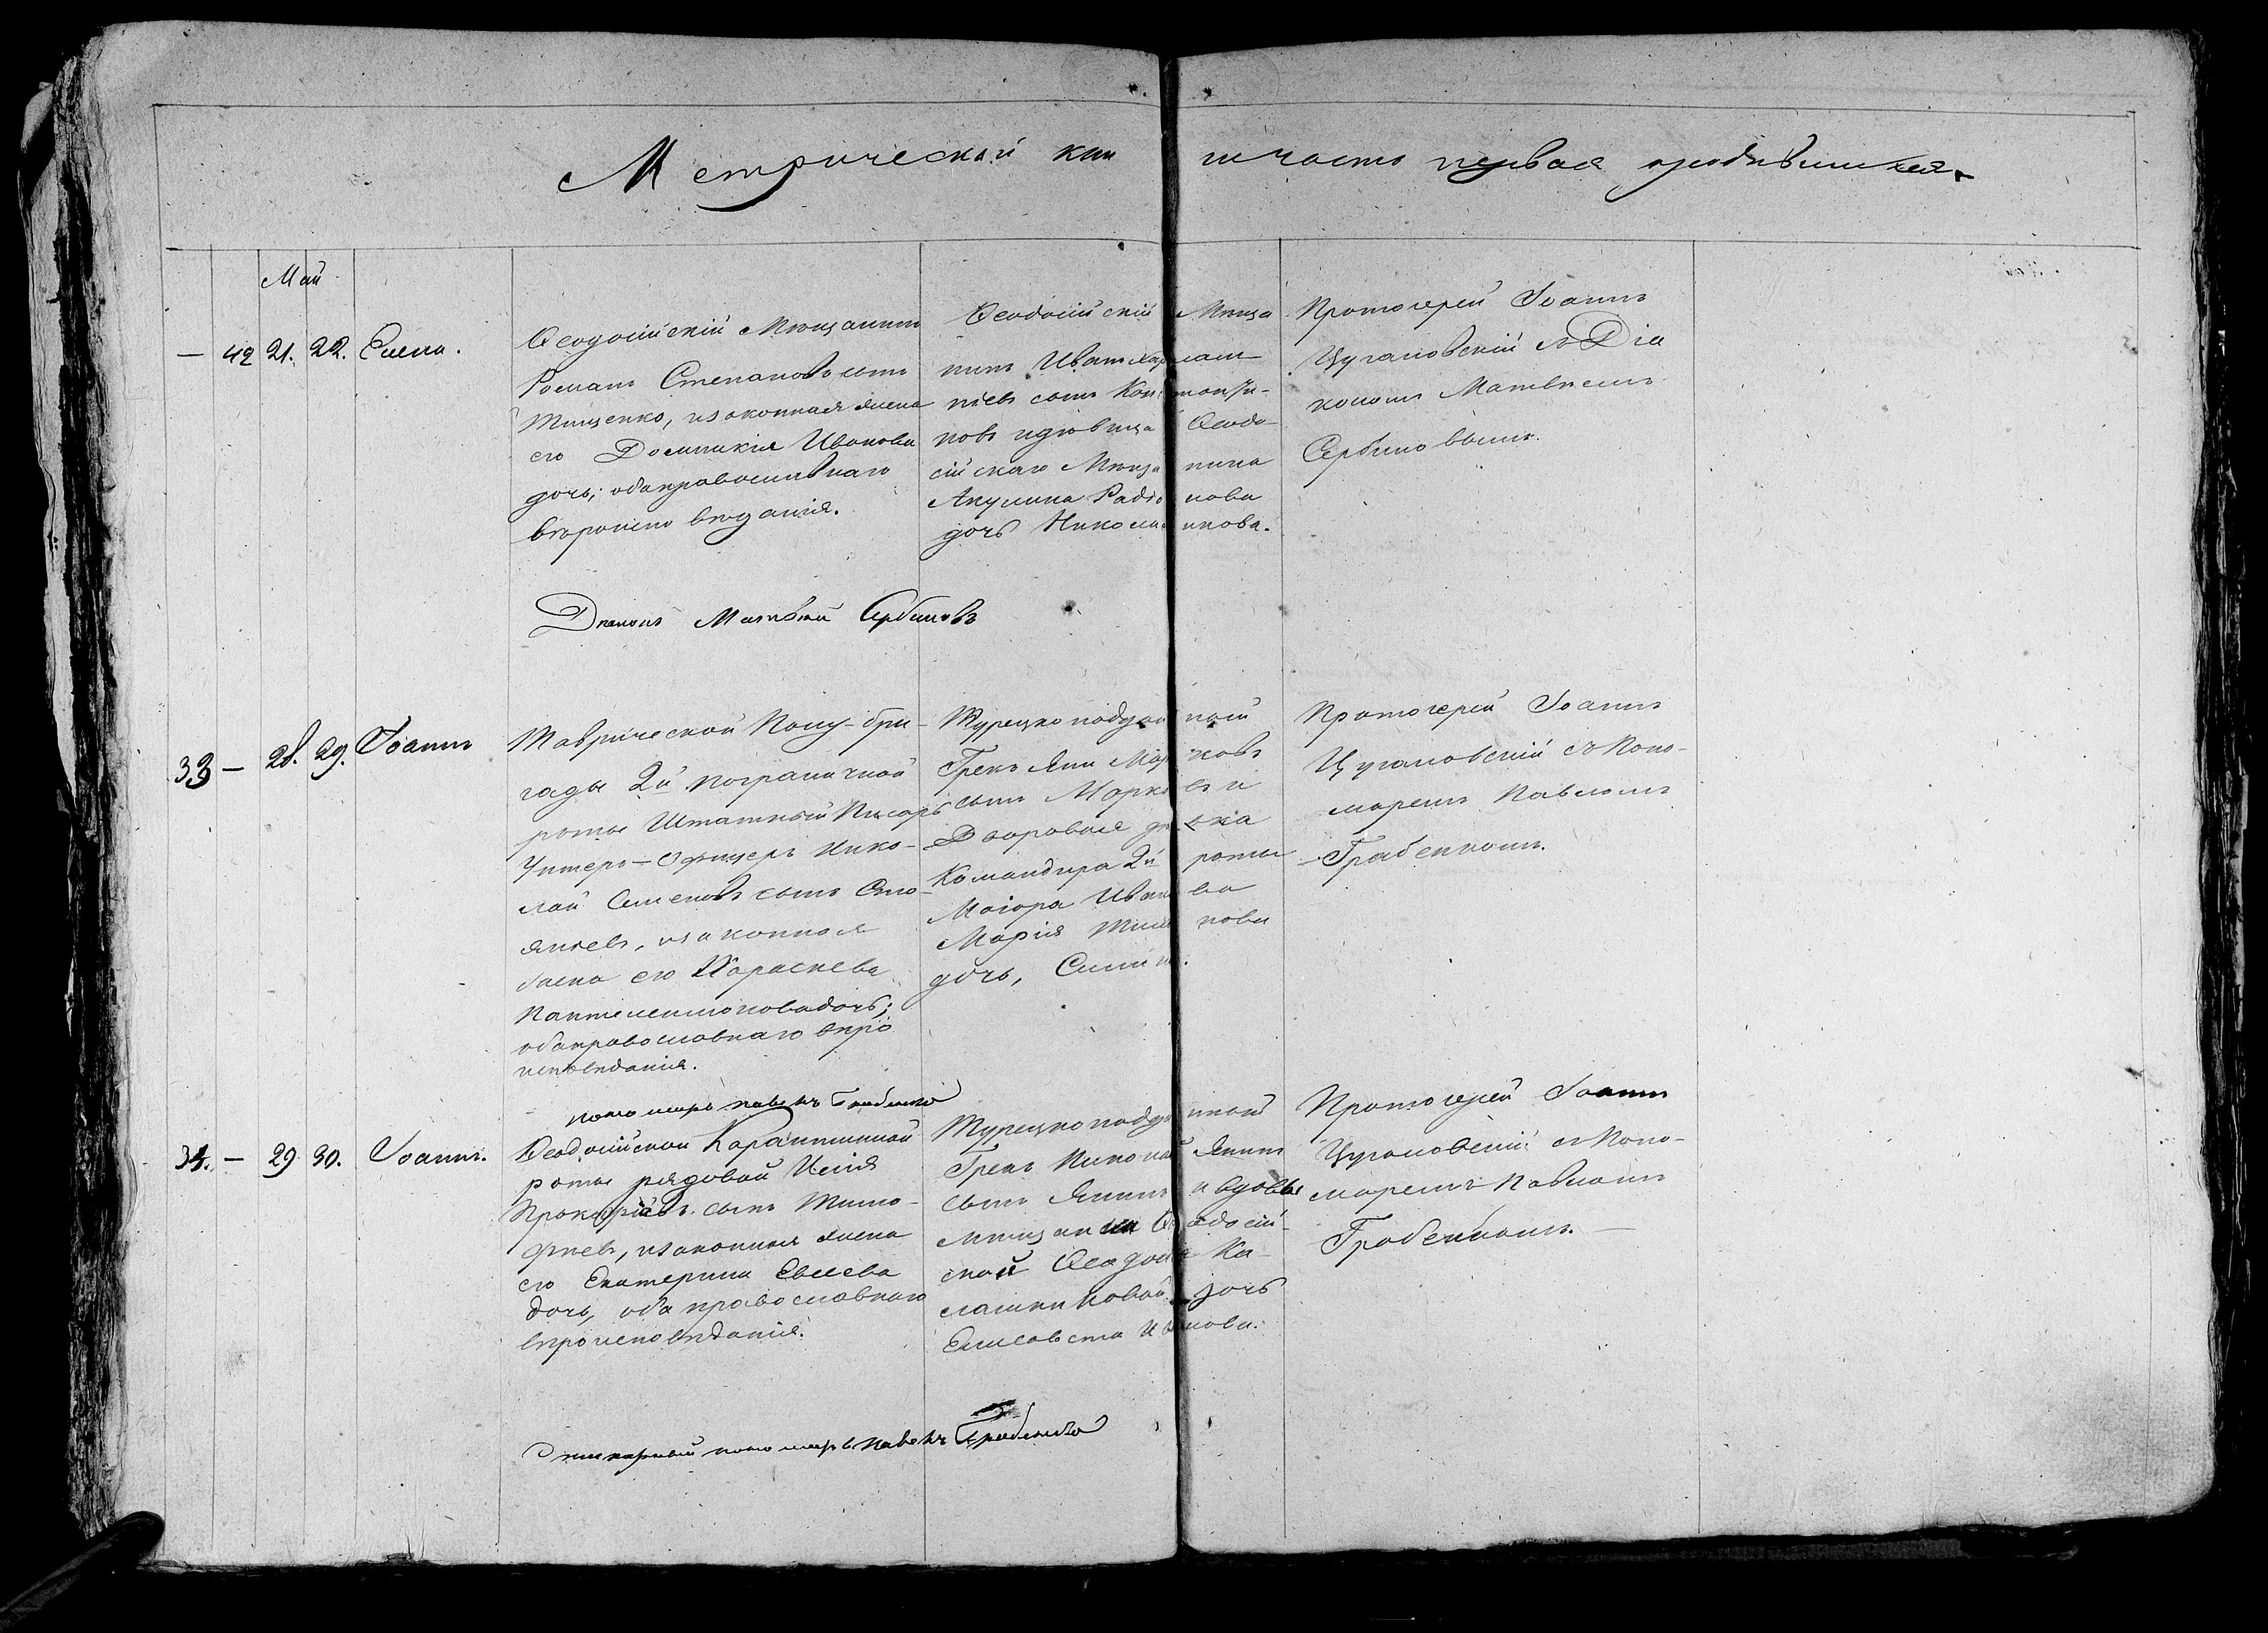 Метрической кни ги часть первая о родившихся.
Май
— 42 21. 22. Елена.
Ѳеодосійскій Мѣщанинъ
Романъ Степановъ сынъ
Тищенко, и законная жена
его Домникія Иванова
дочь; оба православнаго
вѣроисповѣданія.
Ѳеодосійскій Мѣща
нинъ Иванъ Харлам
піевъ сынъ Констанди-
новъ и дѣвица Ѳеодо
сійскаго Мѣща нина
Акулина Радіо нова
дочь Никола икова.
Протоіерей Іоаннъ
Цугановскій съ Діа
кономъ Матвѣемъ
Сербиновымъ.
Діаконъ Матвѣй Сербиновъ
33 — 28. 29. Іоаннъ
Таврической Полу-бри-
гады 2й пограничной
роты Штатный Писарь
Унтеръ-Офицеръ Нико-
лай Семеновъ сынъ Сто
янъевъ, и законная
жена его Параскева
Пантелеимонова дочь;
оба православнаго вѣро
исповѣданія.
Турецко поддан ной
Грекъ Яни Мар ковъ
сынъ Марко въ и
Дворовая дѣ вка
Командира 2й роты
Маіора Иван ва
Марія Тим нова
дочь,
Протоіерей Іоаннъ
Цугановскій съ Поно-
маремъ Павломъ
Грабенкомъ.
пономарь Павелъ Грабенко
34. — 29 30. Іоаннъ.
Ѳеодосійской Карантинной
роты рядовой Илія
Прокофіевъ сынъ Тимо-
фѣевъ, и законная жена
его Екатерина Евсеева
дочь, оба православнаго
вѣроисповѣданія.
Турецко поддан ной
Грекъ Николай Янинъ
сынъ Янинъ и вдовы
мѣщанки Ѳеодосій-
ской Ѳеодосіи Ка-
лашниковой дочь
Елисавета Иванова.
Протоіерей Іоаннъ
Цугановскій съ Поно-
маремъ Павломъ
Грабенкомъ. —
пономарь Павелъ Грабенко